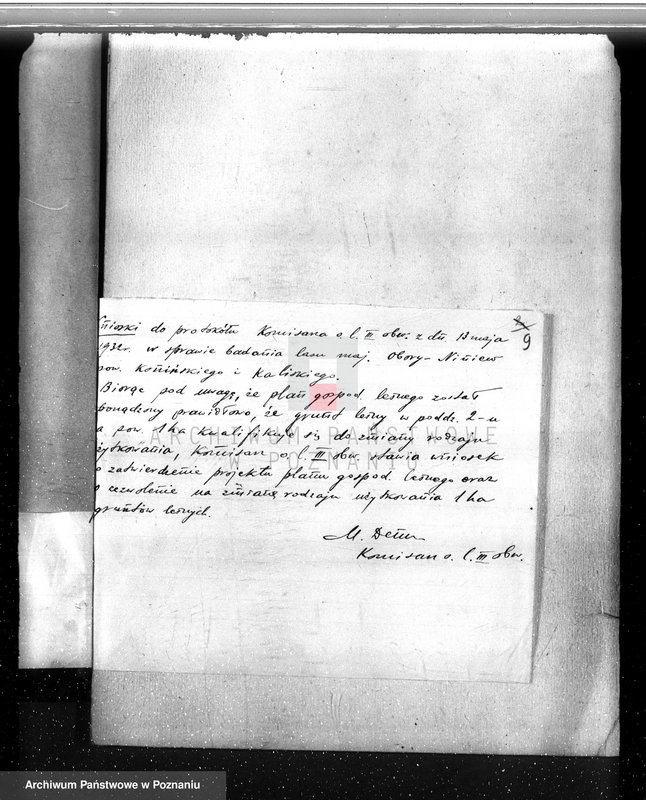 9
Wnioski do protokółu Komisarza o. l. III obw. z dn. 13 maja
1932 r. w sprawie badania lasu maj. Obory-Niniew
pow. Konińskiego i Kaliskiego.
Biorąc pod uwagę, że plan gospod. leśnego został
sporządzony prawidłowo, że grunt leśny w poddz. 2-a
o pow. 1 ha kwalifikuje się do zmiany rodzaju
użytkowania, Komisarz o. l. III obw. stawia wniosek
o zatwierdzenie projektu planu gospod. leśnego oraz
o zezwolenie na zmianę rodzaju użytkowania 1 ha
gruntów leśnych.
M.
Komisarz o. l. III obw.
ARCHIWUM PAŃSTWOWE
W POZNANIU
Archiwum Państwowe w Poznaniu